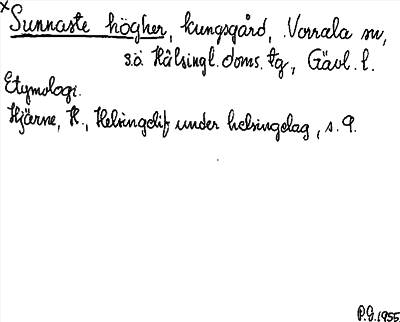 x Sunnaste högher, kungsgård, Norrala sn,
s.ö. Hälsingl. doms. tg, Gävl. l.
Etymologi.
Hjärne, H., Helsingelif under helsingelag, s. 9.
P.G. 1955.